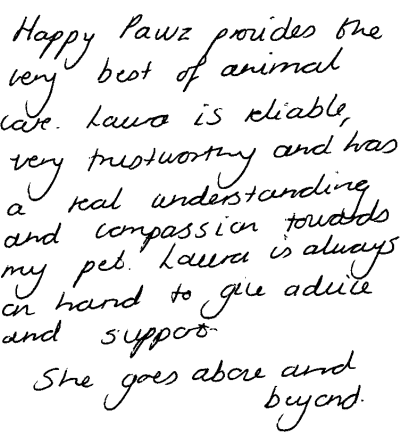 Happy Pawz provides the
very best of animal
care. Laura is reliable,
very trustworthy and has
a real understanding
and compassion towards
my pet. Laura is always
on hand to give advice
and support.
She goes above and
beyond.